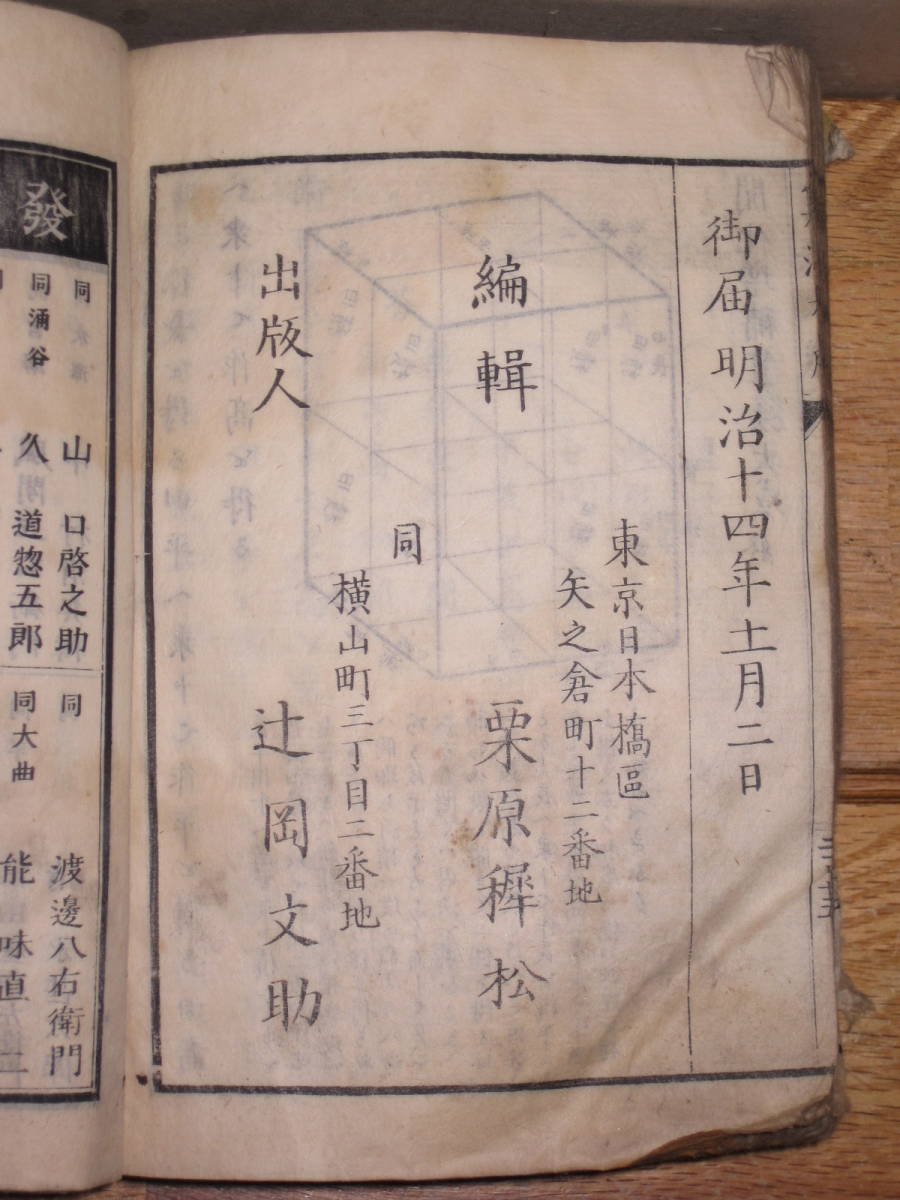 御届明治十四年十一月二日
編輯
東京日本橋區
矢之倉町十二番地
栗原穉松
同
横山町三丁目二番地
出版人
辻岡文助
發
同
山口啓之助
同涌谷
久道惣五郎
同
渡邊八右衛門
同大曲
能味直二